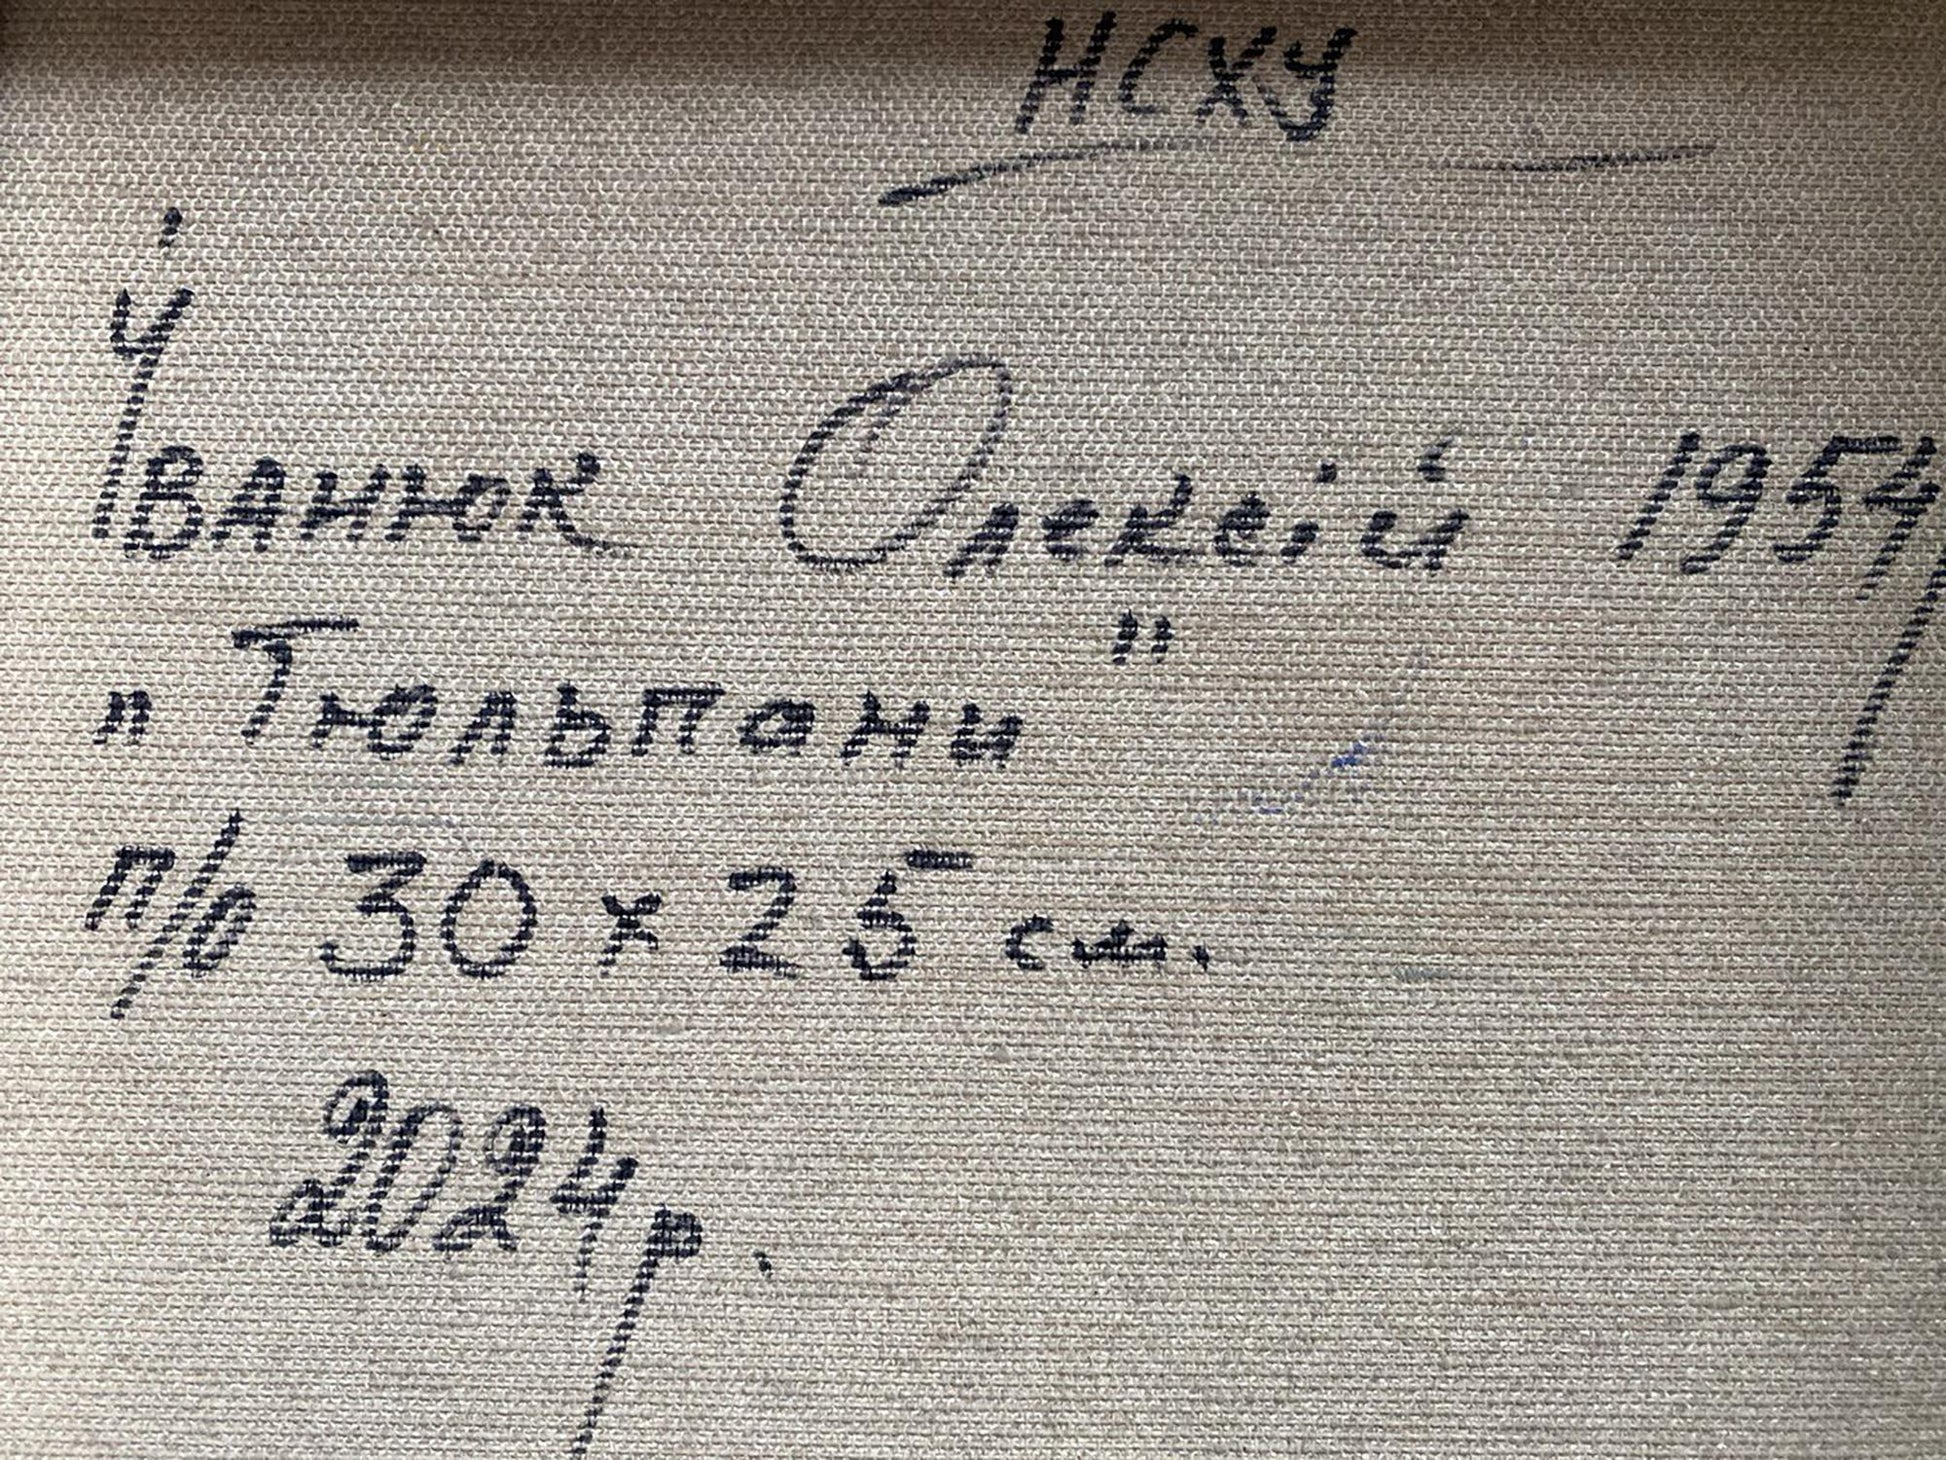 НСХУ
Іванюк Олексій 1954р
„Тюльпани"
п/о 30 x 25 см.
2024р.